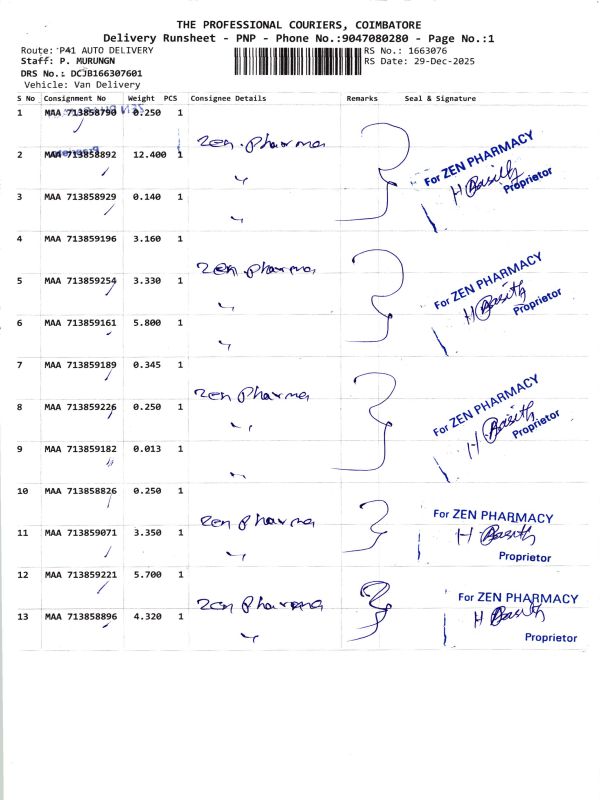 THE PROFESSIONAL COURIERS, COIMBATORE
Delivery Runsheet - PNP - Phone No.:9047080280 - Page No.:1
Route: P41 AUTO DELIVERY
RS No.: 1663076
Staff: P. MURUNGN
RS Date: 29-Dec-2025
DRS No.: DCJB166307601
Vehicle: Van Delivery
S No Consignment No Weight PCS Consignee Details Remarks Seal & Signature
1 MAA 713858790 0.250 1
Zen Pharma
2 MAA 713858892 12.400 1 "
For ZEN PHARMACY
H Basith
Proprietor
3 MAA 713858929 0.140 1 "
4 MAA 713859196 3.160 1
Zen Pharma
5 MAA 713859254 3.330 1 "
For ZEN PHARMACY
H Basith
Proprietor
6 MAA 713859161 5.800 1 "
7 MAA 713859189 0.345 1
Zen Pharma
8 MAA 713859226 0.250 1 "
For ZEN PHARMACY
H Basith
Proprietor
9 MAA 713859182 0.013 1 "
10 MAA 713858826 0.250 1
Zen Pharma
For ZEN PHARMACY
H Basith
Proprietor
11 MAA 713859071 3.350 1 "
12 MAA 713859221 5.700 1
Zen Pharma
For ZEN PHARMACY
H Basith
Proprietor
13 MAA 713858896 4.320 1 "